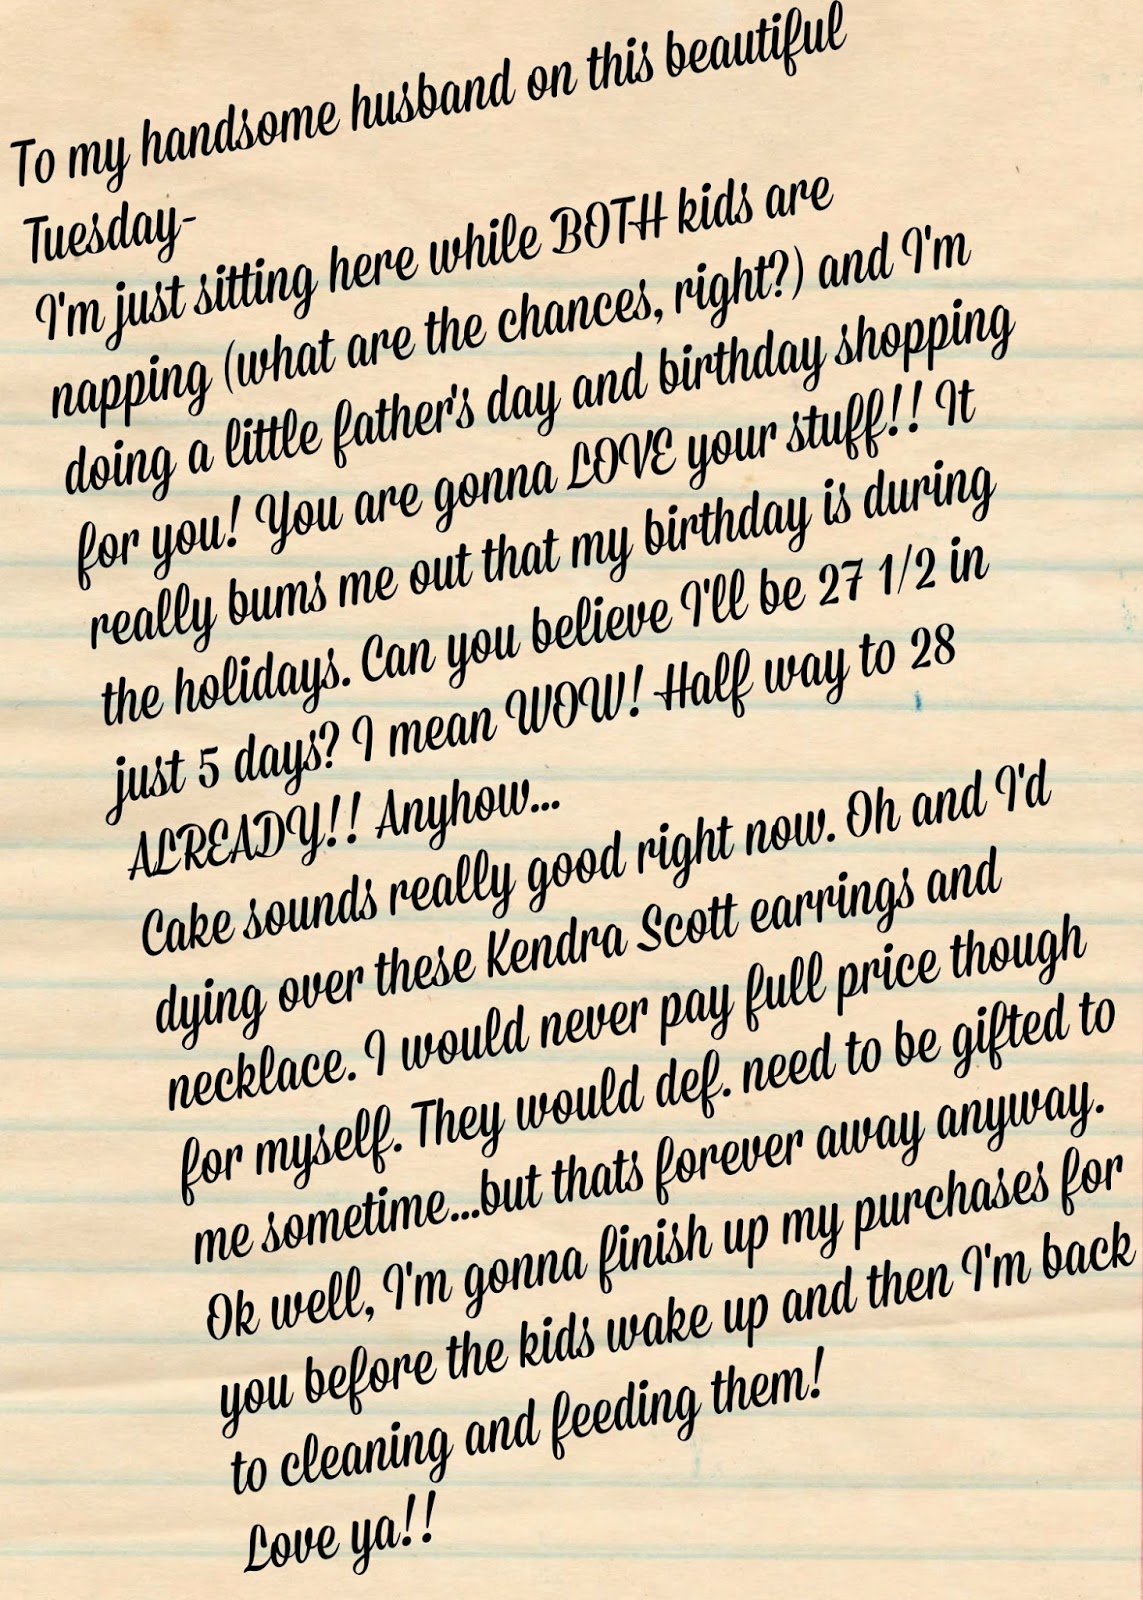 To my handsome husband on this beautiful
Tuesday-
I'm just sitting here while BOTH kids are
napping (what are the chances, right?) and I'm
doing a little father's day and birthday shopping
for you! You are gonna LOVE your stuff!! It
really bums me out that my birthday is during
the holidays. Can you believe I'll be 27 1/2 in
just 5 days? I mean WOW! Half way to 28
ALREADY!! Anyhow...
Cake sounds really good right now. Oh and I'd
dying over these Kendra Scott earrings and
necklace. I would never pay full price though
for myself. They would def. need to be gifted to
me sometime...but thats forever away anyway.
Ok well, I'm gonna finish up my purchases for
you before the kids wake up and then I'm back
to cleaning and feeding them!
Love ya!!